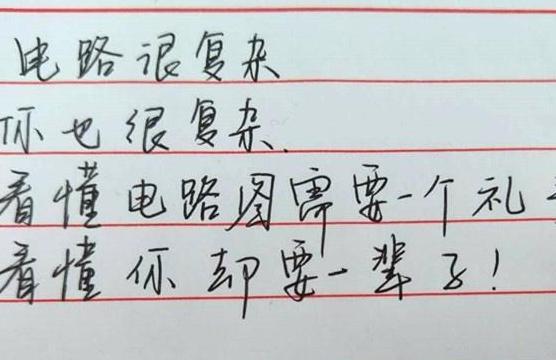 电路很复杂
你也很复杂.
看懂电路图需要一个礼
看懂你却要一辈子!